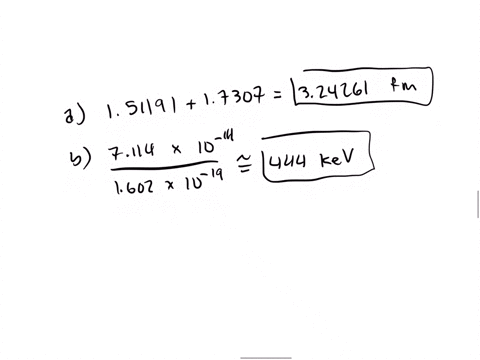 a) 1.51191 + 1.7307 = 3.24261 fm
b) 7.114 × 10^-14 / 1.602 × 10^-19 ≅ 444 keV